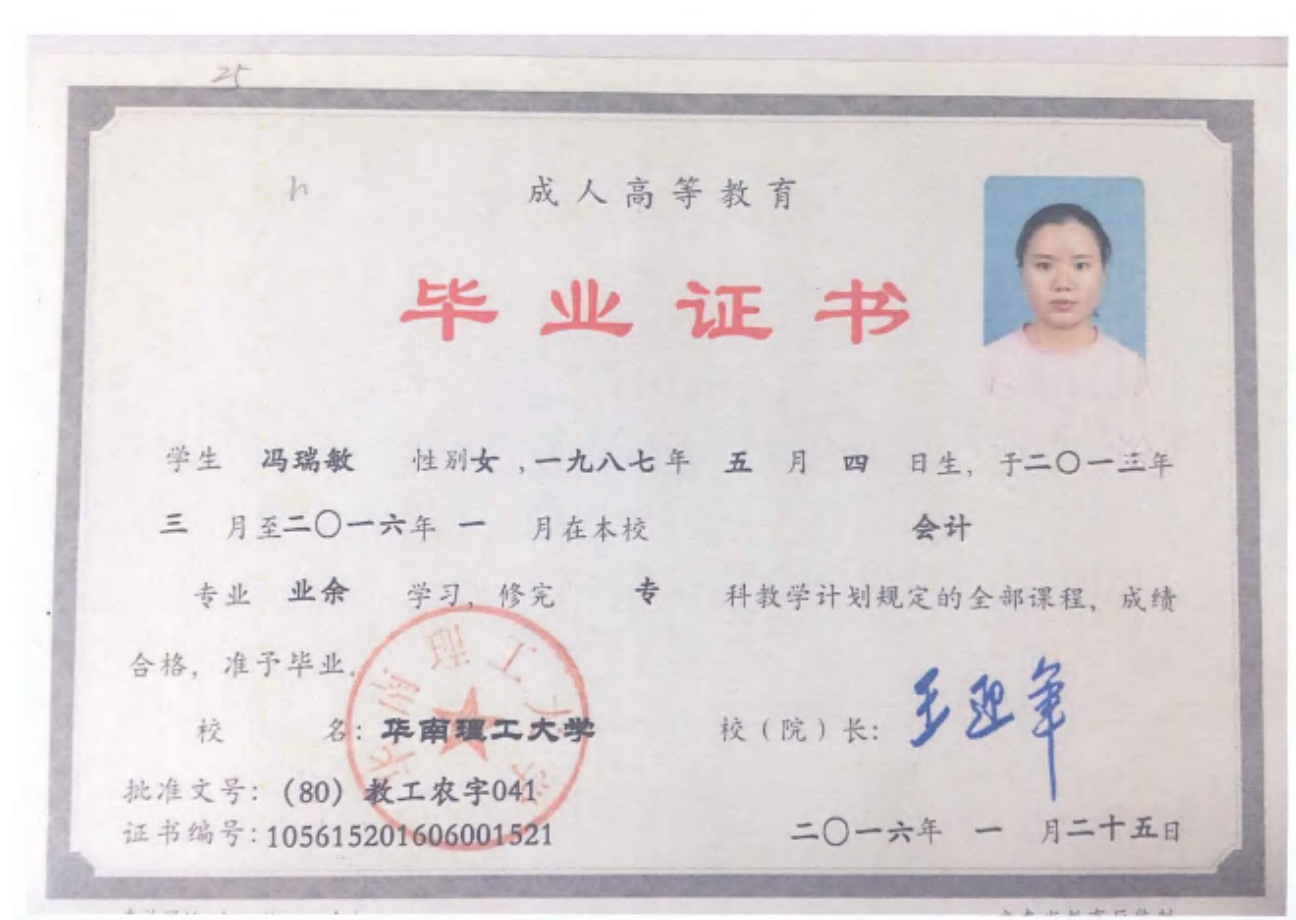 25
h
成人高等教育
毕业证书
学生 冯瑞敏 性别女,一九八七年 五 月 四 日生, 于二〇一三年
三 月至二〇一六年 一 月在本校 会计
专业 业余 学习, 修完 专 科教学计划规定的全部课程, 成绩
合格, 准予毕业.
华南理工大学
校 名: 华南理工大学 校(院)长: 王迎军
批准文号: (80) 教工农字041
证书编号: 105615201606001521 二〇一六年 一 月二十五日